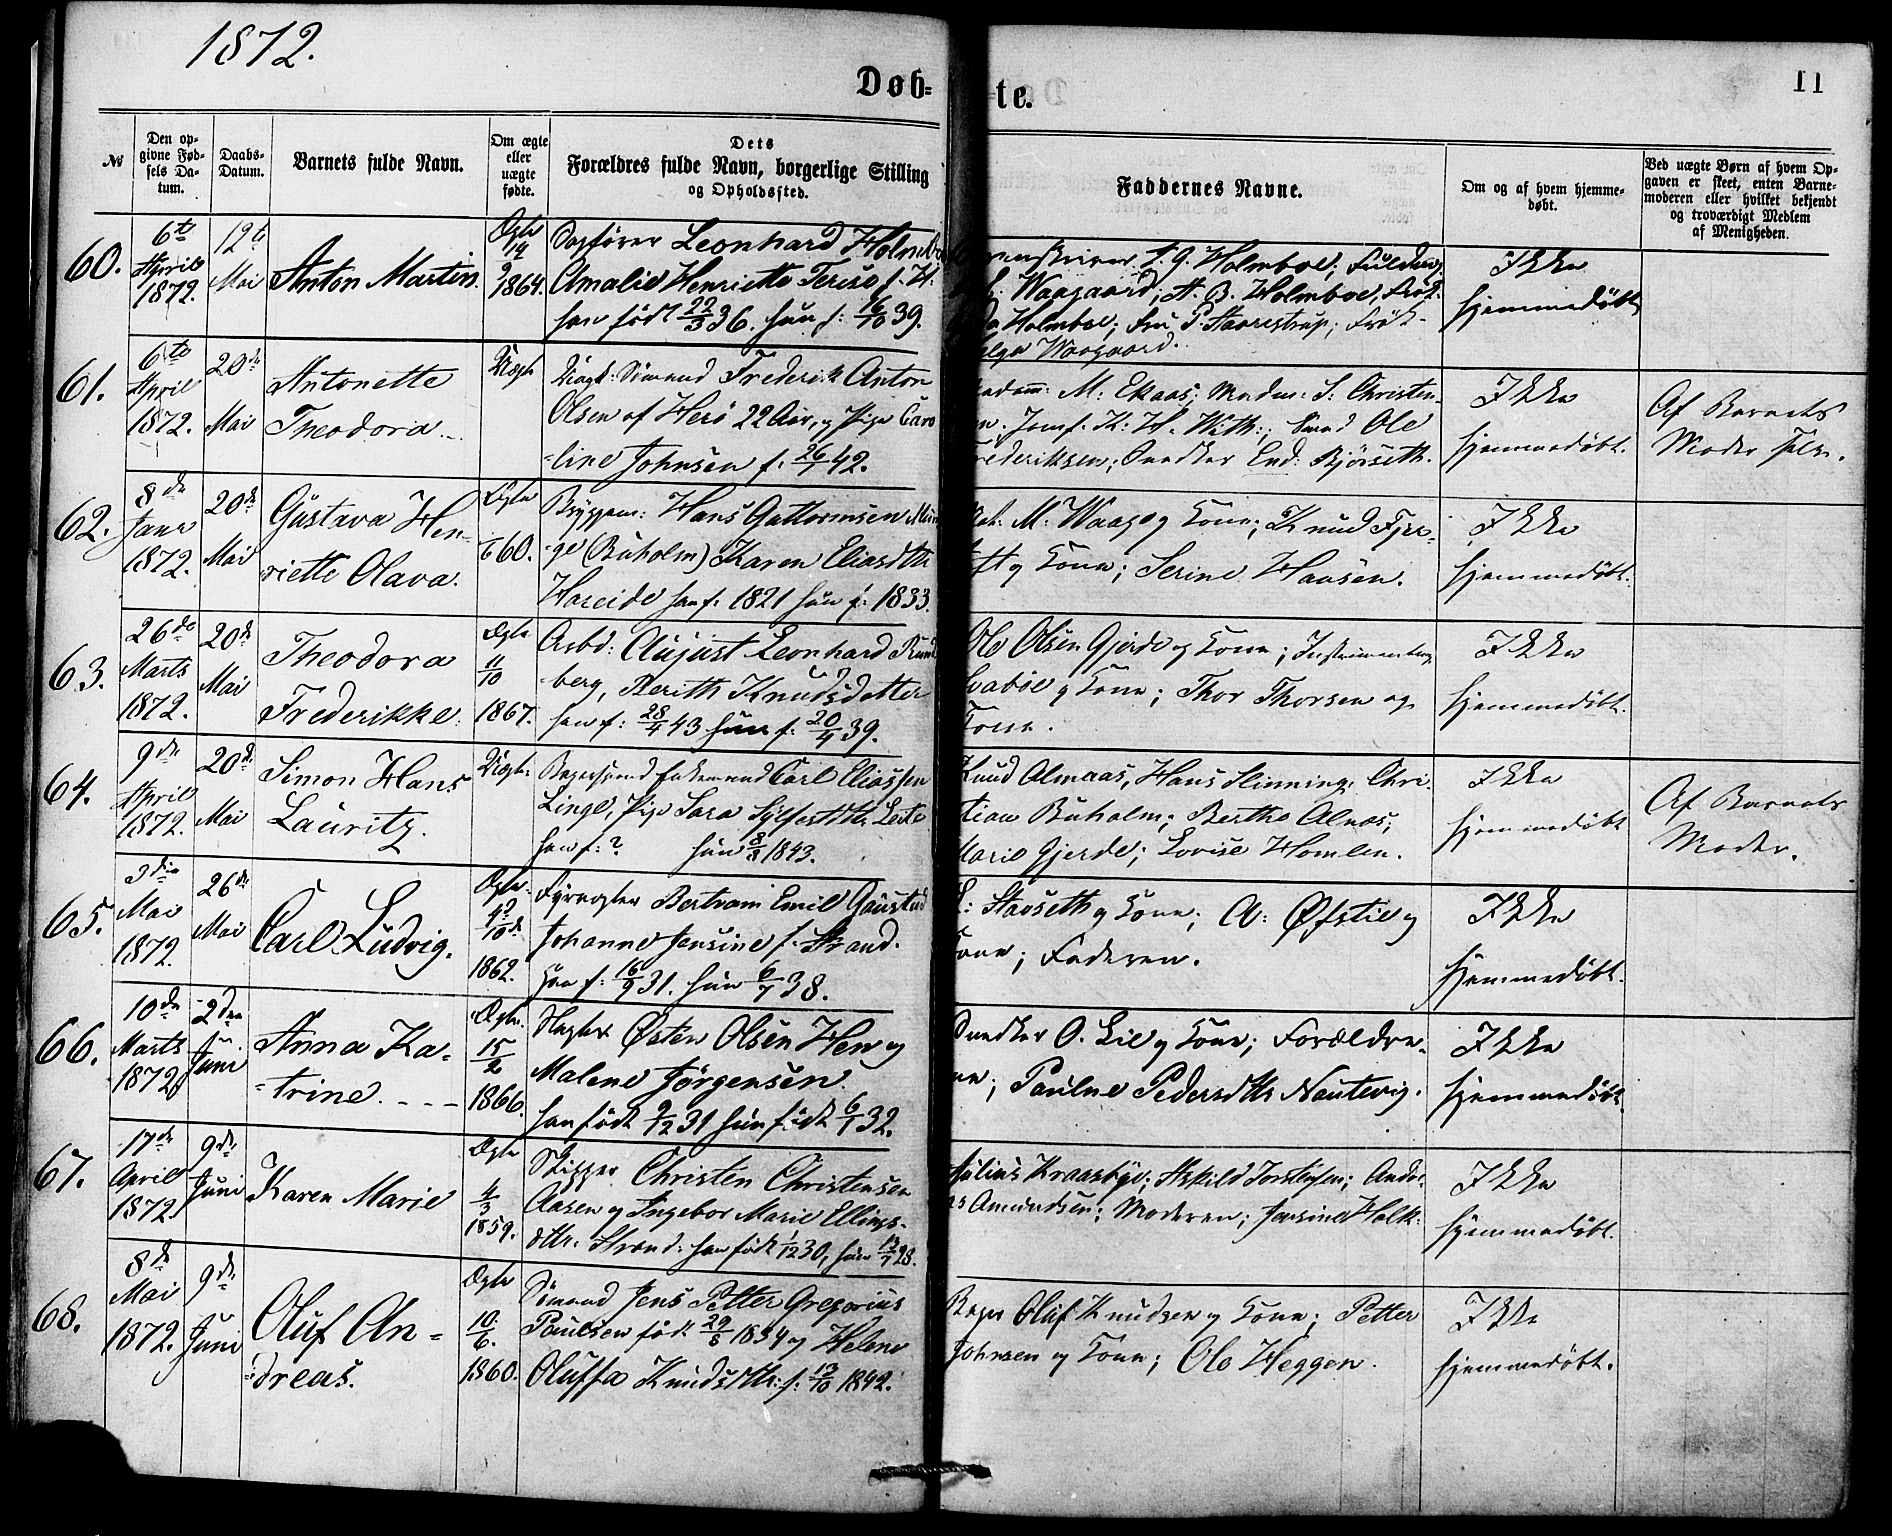 1872.
Døb=
te.
11
№
Den op=
givne Fød=
sels Da=
tum.
Daabs=
Datum.
Barnets fulde Navn.
Om ægte
eller
uægte
fødte.
Dets
Forældres fulde Navn, borgerlige Stilling
og Opholdssted.
Faddernes Navne.
Om og af hvem hjemme=
døbt.
Ved uægte Børn af hvem Op=
gaven er skeet, enten Barne=
moderen eller hvilket bekjendt
og troværdigt Medlem
af Menigheden.
60.
6te
April
1872.
12te
Mai
Anton Martin.
Ægte
1864.
Sagfører Leonhard Holmbo
Amalie Henriette Terese f. H.
han født 22/3 36. hun f: 16/10 39.
Holmboe;
Waagaard; A. B. Holmboe,
Holmboe; Fru P. Staarestrup; Frøk.
Waagaard.
Ikke
hjemmedøbt
61.
6te
April
1872.
20de
Mai
Antonette
Theodora
Uægte
Uægt: Sømand Frederik Anton
Olsen af Herö 22 Aar, og Pige Caro
line Johnsen f. 26/1 42.
M: Ekaas; Madm: S. Christen-
Jomf. K: H. With; Ole
rederiksen; Snedker End: Bjørseth.
Ikke
hjemmedøbt.
Af Barnets
Moder selv.
62.
8de
Janr
1872.
20de
Mai
Gustava Hen-
riette Olava.
Ægte
60.
Byggem: Hans Guttormsen Mün
ge (Buholm) Karen Eliasdtr
Hareide han f. 1821 hun f: 1833.
M. Waage og Kone; Knud Fjer-
og Kone; Serine Hansen.
Ikke
hjemmedøbt.
63.
26de
Marts
1872.
20de
Mai
Theodora
Frederikke.
Ægte
11/10
1867.
Arbd: August Leonhard Rund
berg, Berith Knudsdatter
han f: 28/4 43 hun f. 20/4 39.
Ole Olsen Gjerde og Kone;
og Kone; Thor Thorsen og
Kone.
Ikke
hjemmedøbt.
64.
9de
April
1872.
20de
Mai
Simon Hans
Lauritz.
Uægte
Carl Eliassen
Linge, Pige Sara Sylfestdtr Leite
han f: ? hun 8/8 1843.
Knud Almaas, Hans Slinning, Chri-
stian Buholm; Berthe Alnæs;
Marie Gjerde; Lovise Homlen.
Ikke
hjemmedøbt
Af Barnets
Moder.
65.
3die
Mai
1872.
26de
Mai
Carl Ludvig.
Ægte
1862.
Fyrvogter Bertram Emil Gaustad
Johanne Jensine f. Strand.
han f: 16/9 31. hun 6/7 38.
Stavseth og Kone; A: Øfstie og
Kone; Faderen.
Ikke
hjemmedøbt.
66.
10de
Marts
1872
2den
Juni
Anna Ka-
trine.
Ægte
15/2
1866.
Slagter Østen Olsen Hen og
Malene Jørgensen.
han født 9/12 31 hun født 6/1 32.
Snedker O. Lie og Kone; Forældre-
ne; Pauline Pedersdtr Nautvig.
Ikke
hjemmedøbt.
67.
17de
April
1872
9de
Juni
Karen Marie
Ægte
4/3
1859.
Skipper Christen Christensen
Aasen og Ingebor Marie Ellings-
dtr. Strand: han født 1/12 30, hun 13/7 28.
Julius Kraasbye; Askild Torstensen; Andr-
as Amundsen; Moderen; Jensine Holk:
Ikke
hjemmedøbt.
68.
8de
Mai
1872.
9de
Juni
Oluf An-
dreas.
Ægte
10/6
1860.
Sømand Jens Petter Gregorius
Paulsen født 29/8 1834 og Helene
Oluffa Knudsdtr: f: 13/10 1842.
Bager Oluf Knudsen og Kone; Petter
Johnsen og Kone; Ole Heggen.
Ikke
hjemmedøbt.